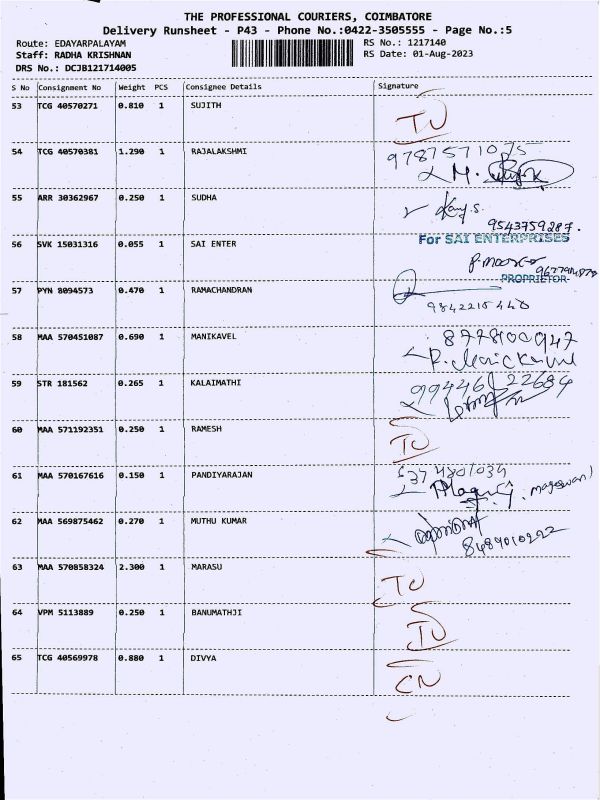 THE PROFESSIONAL COURIERS, COIMBATORE
Delivery Runsheet - P43 - Phone No.:0422-3505555 - Page No.:5
Route: EDAYARPALAYAM
Staff: RADHA KRISHNAN
DRS No.: DCJB121714005
RS No.: 1217140
RS Date: 01-Aug-2023
S No Consignment No Weight PCS Consignee Details Signature
53 TCG 40570271 0.810 1 SUJITH
54 TCG 40570381 1.290 1 RAJALAKSHMI
55 ARR 30362967 0.250 1 SUDHA
9543759287.
56 SVK 15031316 0.055 1 SAI ENTER For SAI ENTERPRISES
PROPRIETOR
57 PYN 8094573 0.470 1 RAMACHANDRAN
9842215440
58 MAA 570451087 0.690 1 MANIKAVEL
59 STR 181562 0.265 1 KALAIMATHI
60 MAA 571192351 0.250 1 RAMESH
61 MAA 570167616 0.150 1 PANDIYARAJAN
62 MAA 569875462 0.270 1 MUTHU KUMAR
8489010222
63 MAA 570858324 2.300 1 MARASU
64 VPM 5113889 0.250 1 BANUMATHJI
65 TCG 40569978 0.880 1 DIVYA
CN